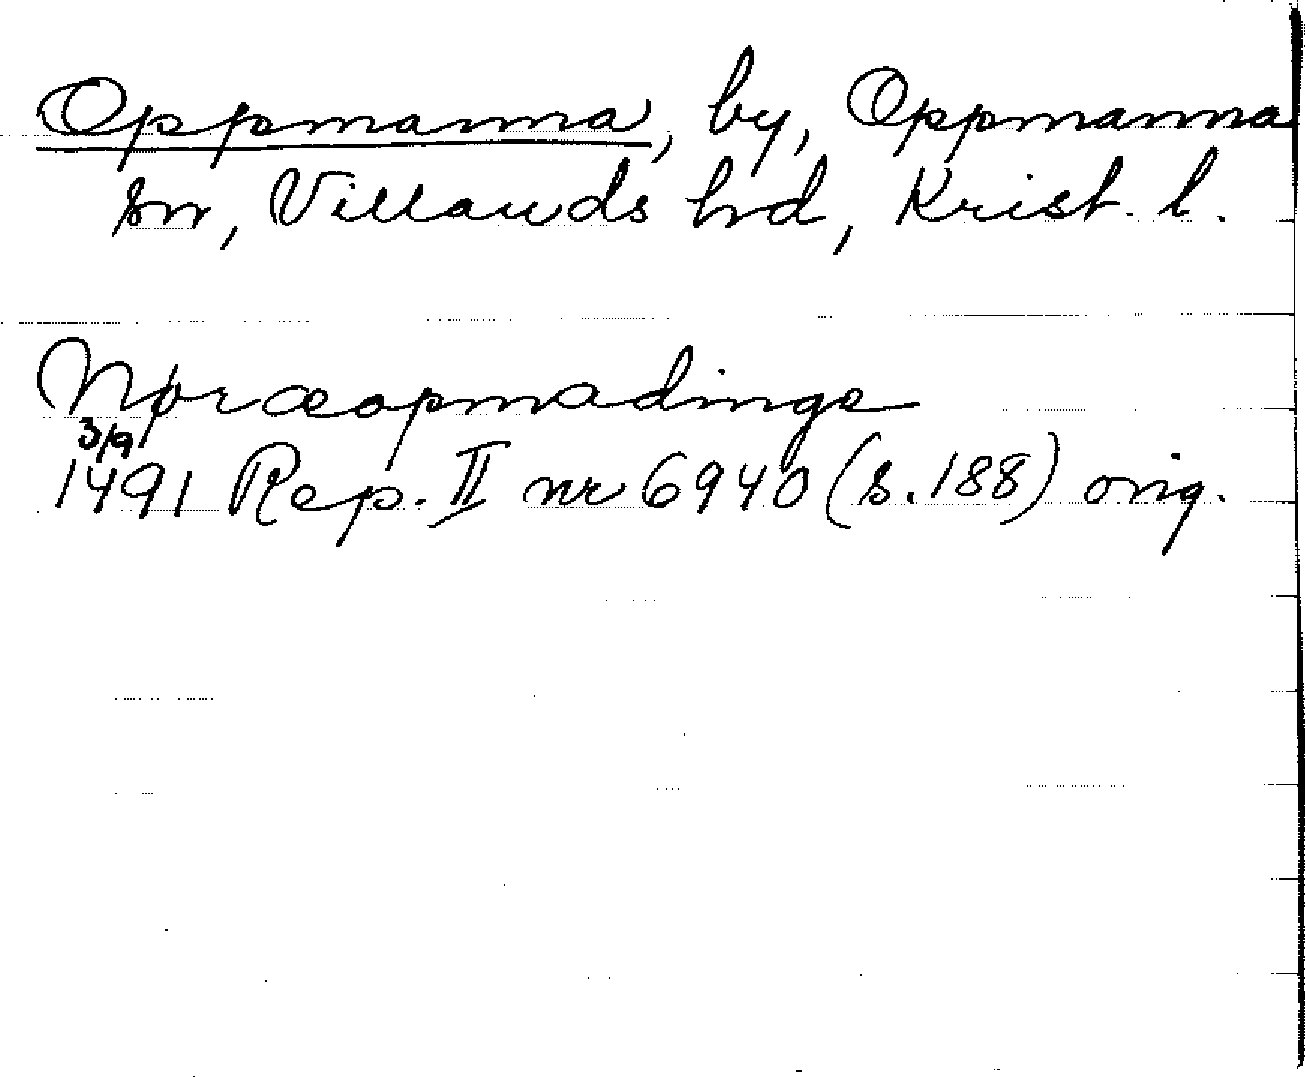 Oppmanna, by, Oppmanna
sn, Villands hrd, Krist. l.
Nørræopmadinge
3/9
1491 Rep. II nr 6940 (s. 188) orig.